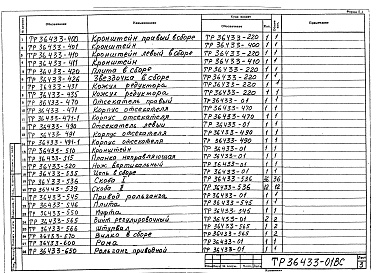 Обозначение Наименование Куда входит Примечание
ТР 36433-400 Кронштейн правый в сборе ТР 36433-220 1 1
ТР 36433-401 Кронштейн ТР 36433-400 1 1
ТР 36433-410 Кронштейн левый в сборе ТР 36433-220 1 1
ТР 36433-411 Кронштейн ТР 36433-410 1 1
ТР 36433-420 Плита в сборе ТР 36433-220 1 1
ТР 36433-426 Звездочка в сборе ТР 36433-220 1 1
ТР 36433-431 Кожух редуктора ТР 36433-220 1 1
ТР 36433-435 Кожух редуктора ТР 36433-220 1 1
ТР 36433-470 Отсекатель правый ТР 36433-01 1 1
ТР 36433-471 Корпус отсекателя ТР 36433-470 1 1
ТР 36433-471-1 Корпус отсекателя ТР 36433-470 1 1
ТР 36433-490 Отсекатель левый ТР 36433-01 1 1
ТР 36433-491 Корпус отсекателя ТР 36433-490 1 1
ТР 36433-491-1 Корпус отсекателя ТР 36433-490 1 1
ТР 36433-510 Кронштейн ТР 36433-01 1 1
ТР 36433-515 Планка направляющая ТР 36433-01 1 1
ТР 36433-520 Нож вертикальный ТР 36433-01 1 1
ТР 36433-535 Цепь в сборе ТР 36433-01 1 1
ТР 36433-536 Скоба I ТР 36433-536 36
ТР 36433-539 Скоба II ТР 36433-536 12 12
ТР 36433-545 Привод рольганга ТР 36433-01 1 1
ТР 36433-546 Плита ТР 36433-545 1 1
ТР 36433-550 Муфта ТР 36433-545 1 1
ТР 36433-565 Винт регулировочный ТР 36433-01 2 2
ТР 36433-566 Штурвал ТР 36433-565 1 2
ТР 36433-570 Вилка в сборе ТР 36433-565 1 2
ТР 36433-600 Рама ТР 36433-01 1 1
ТР 36433-650 Рольганг приводной ТР 36433-01 1 1
ТР 36433-01ВС
3